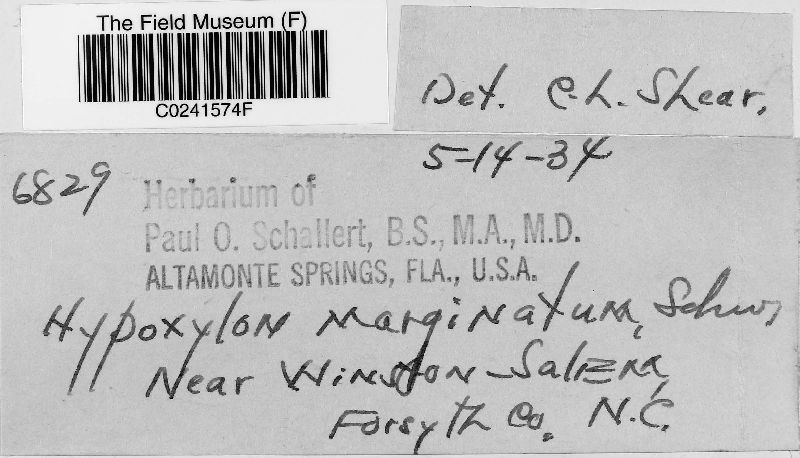 The Field Museum (F)
C0241574F
Det. C.L. Shear,
5-14-34
6829
Herbarium of
Paul O. Schallert, B.S., M.A., M.D.
ALTAMONTE SPRINGS, FLA., U.S.A.
Hypoxylon marginatum, Schw.
Near Winston-Salem,
Forsyth Co. N.C.